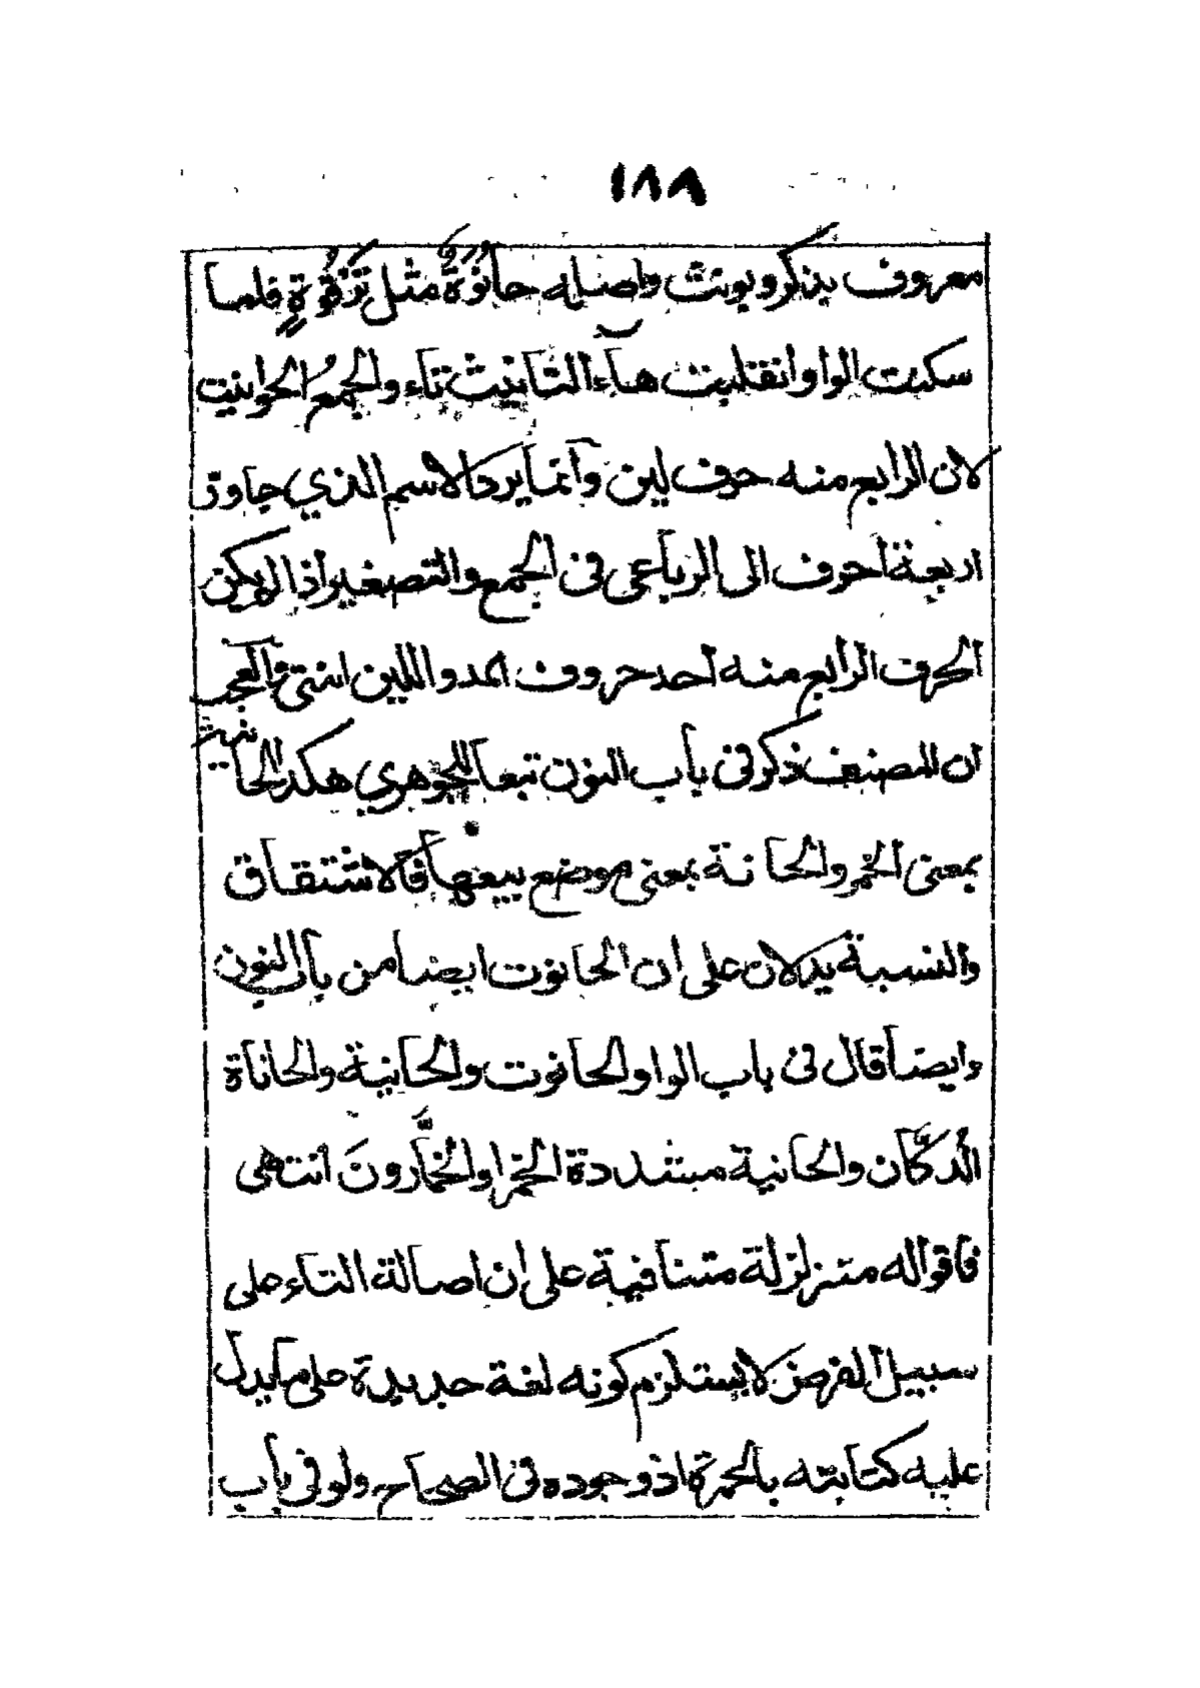 ١٨٨
معروف يذكر ويونث واصله حانُوَةٌ مثل تَرْقُوَةٍ فلما
سكنت الواو انقلبت هآء التانيث تاء والجمعُ الحوانيت
لان الرابع منه حرف لين وانما يرد الاسم الذي جاوز
اربعة احرف الى الرباعى فى الجمع والتصغير اذا لم يكن
الحرف الرابع منه احد حروف المد واللين انتهى والعجب
ان المصنف ذكر فى باب النون تبعا للجوهري هكذا الحانية
بمعنى الخمر والحانة بمعنى موضع بيعها فالاشتقاق
والنسبة يدلان على ان الحانوت ايضا من باب النون
وايضا قال فى باب الواو الحانوت والحانية والحاناة
الدكّان والحانية مشددة الخمر او الخمّارونَ انتهى
فاقواله متزلزلة متنافية على ان اصالة التاء على
سبيل الفرض لا يستلزم كونه لغة جديدة على ما يدل
عليه كتابته بالحمرة اذ وجوده فى الصحاح ولو فى باب